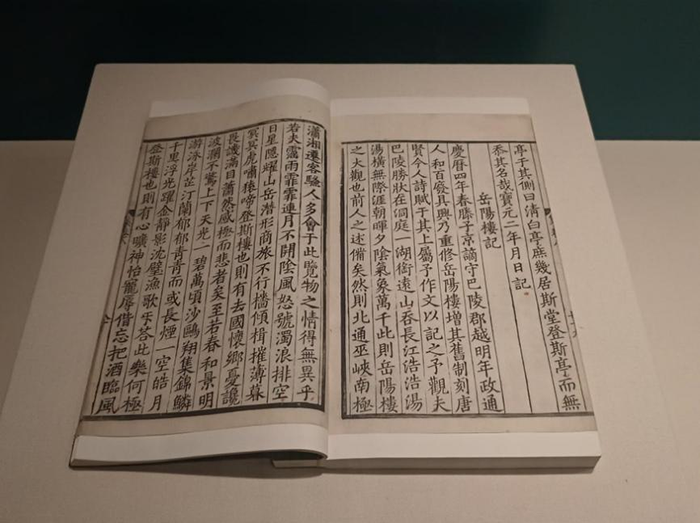 亭于其側曰清白亭庶幾居斯堂登斯亭而無
忝其名哉寳元二年月日記
岳陽樓記
慶曆四年春滕子京謫守巴陵郡越明年政通
人和百廢具興乃重修岳陽樓增其舊制刻唐
賢今人詩賦于其上屬予作文以記之予觀夫
巴陵勝狀在洞庭一湖銜遠山吞長江浩浩湯
湯橫無際涯朝暉夕陰氣象萬千此則岳陽樓
之大觀也前人之述備矣然則北通巫峽南極
瀟湘遷客騷人多會于此覽物之情得無異乎
若夫霪雨霏霏連月不開陰風怒號濁浪排空
日星隱耀山岳潛形商旅不行檣傾楫摧薄暮
冥冥虎嘯猿啼登斯樓也則有去國懷鄉憂讒
畏譏滿目蕭然感極而悲者矣至若春和景明
波瀾不驚上下天光一碧萬頃沙鷗翔集錦鱗
游泳岸芷汀蘭郁郁青青而或長煙一空皓月
千里浮光躍金靜影沈璧漁歌互荅此樂何極
登斯樓也則有心曠神怡寵辱偕忘把酒臨風